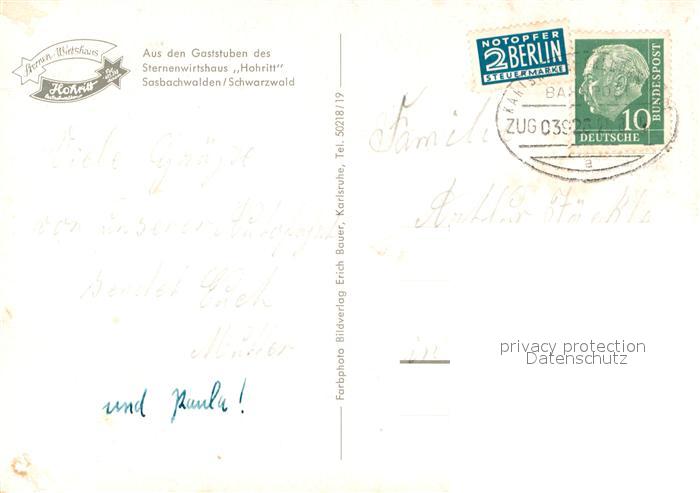 Sternen-Wirtshaus
Hohritt
Aus den Gaststuben des
Sternenwirtshaus „Hohritt"
Sasbachwalden/Schwarzwald
NOTOPFER
2 BERLIN
STEUERMARKE
DEUTSCHE
BUNDESPOST
10
ZUG 039
a
Viele Grüße
von unserer
sendet Euch
Mutter
und Paula!
Farbphoto Bildverlag Erich Bauer, Karlsruhe, Tel. 50218/19
Familie
in
privacy protection
Datenschutz